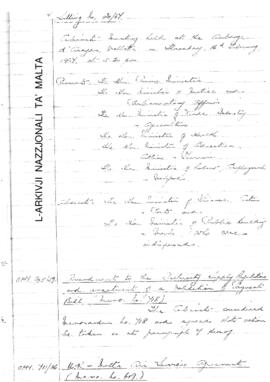 Cabinet Meeting held at the Auberge
d'Aragon, Valletta on Thursday, 16th February,
1967, at 5.30 p.m.
Present: The Hon. Prime Minister
The Hon. Minister of Justice and
Parliamentary Affairs
The Hon. Minister of Trade, Industry
and Agriculture
The Hon. Minister of Health
The Hon. Minister of Education,
Culture and Tourism
The Hon. Minister of Labour, Employment
and Welfare
Absent: The Hon. Minister of Finance, Customs
and Ports and
The Hon. Minister of Public Building
and Works who were
indisposed.
L-ARKIVJI NAZZJONALI TA' MALTA
Amendment to the Electricity Supply Regulations
and enactment of a
Bill (Memo. No. 708)
The Cabinet considered
Memorandum No. 708 and agreed that action
be taken as at paragraph 7 thereof.
U.K. - Malta Air Services Agreement
(Memo. No. 709)